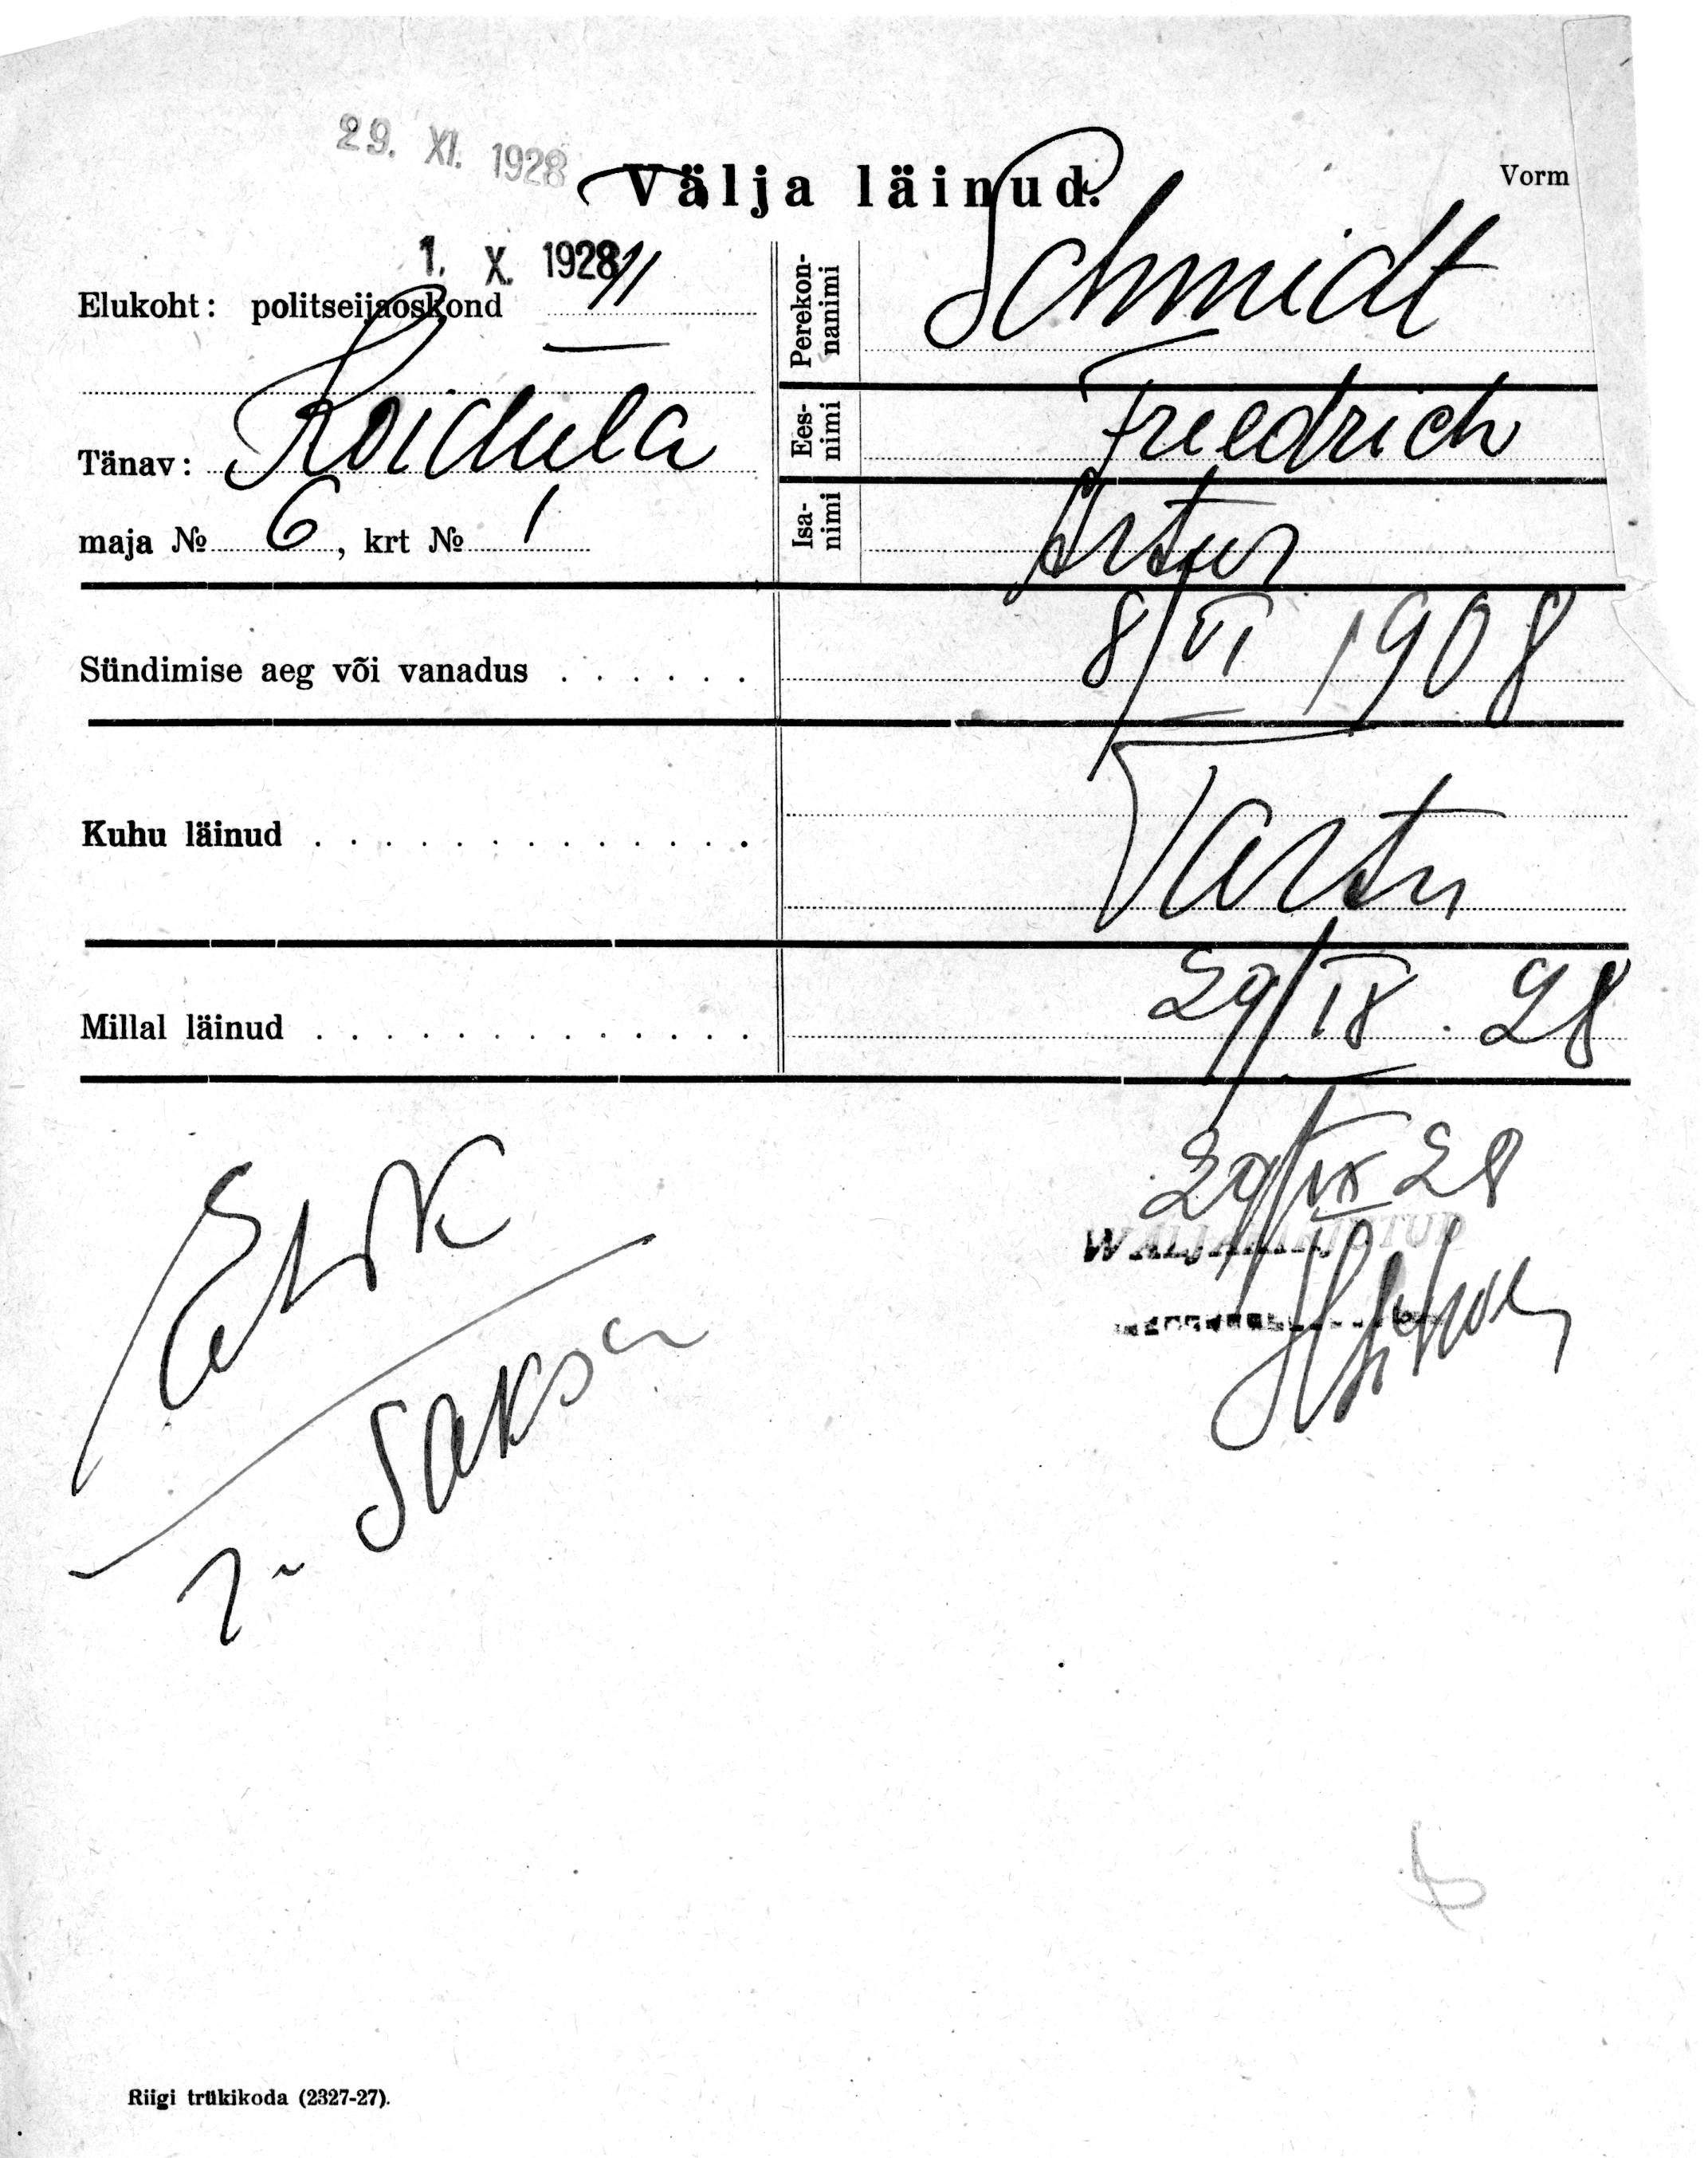 29. XI. 1928
Välja läinud.
Vorm
1. X. 1928
Elukoht: politseijaoskond II
Tänav: Koidula
maja № 6, krt № 1
Perekon-
nanimi
Schmidt
Ees-
nimi
Friedrich
Isa-
nimi
Artur
Sündimise aeg või vanadus . . . . . . 8/VI 1908
Kuhu läinud . . . . . . . . . . . . . Tartu
Millal läinud . . . . . . . . . . . . . 29/IX . 28
29/IX 28
WÄLJAKIRJUTUD
Saksa
Riigi trükikoda (2327-27).